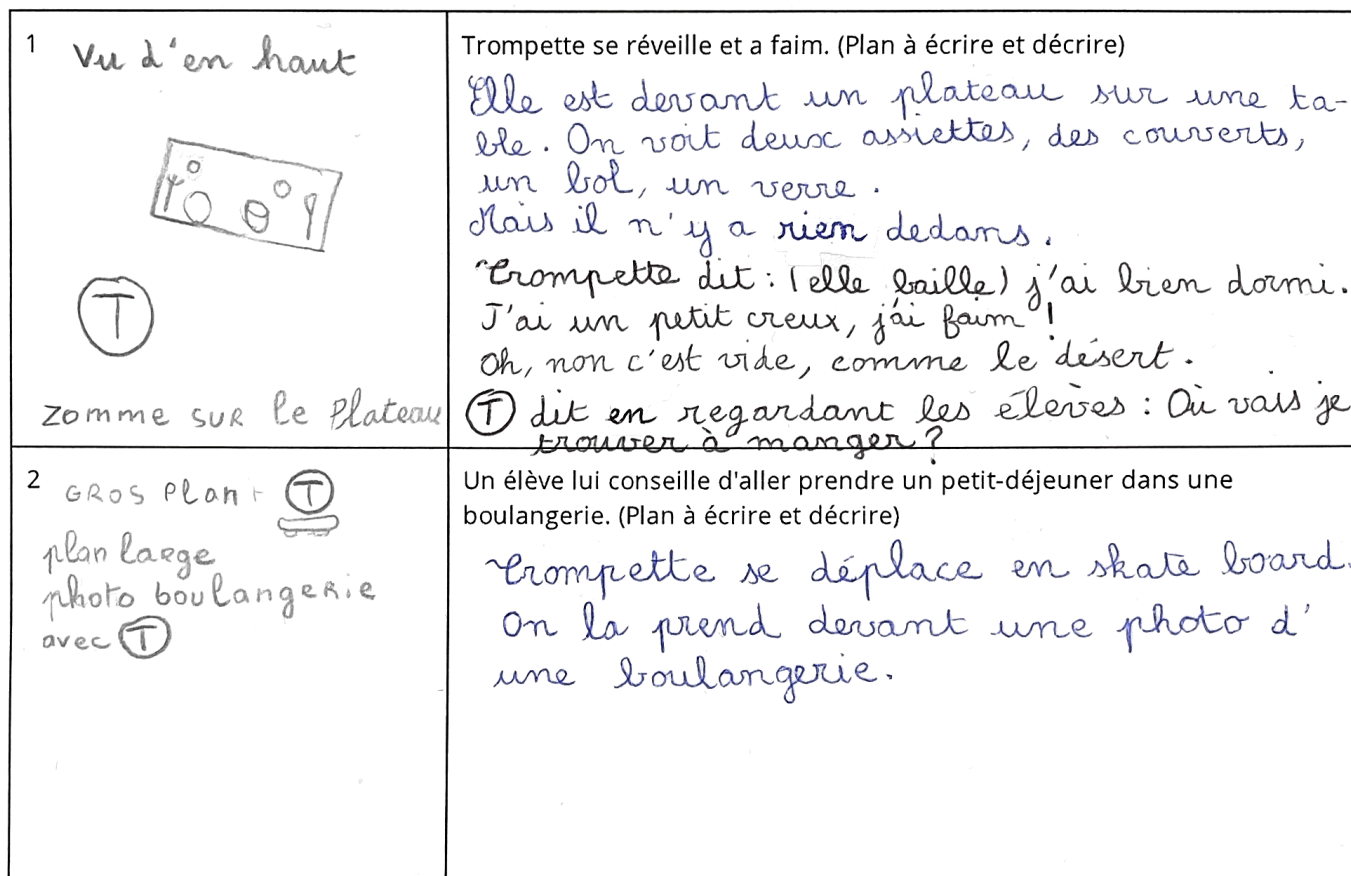 1
Vu d'en haut
T
zomme sur le Plateau
Trompette se réveille et a faim. (Plan à écrire et décrire)
Elle est devant un plateau sur une ta-
ble. On voit deux assiettes, des couverts,
un bol, un verre.
Mais il n'y a rien dedans.
Trompette dit : (elle baille) j'ai bien dormi.
J'ai un petit creux, j'ai faim !
Oh, non c'est vide, comme le désert.
T dit en regardant les élèves : Où vais je
trouver à manger ?
2
GROS Plan T
plan large
photo boulangerie
avec T
Un élève lui conseille d'aller prendre un petit-déjeuner dans une
boulangerie. (Plan à écrire et décrire)
Trompette se déplace en skate board.
On la prend devant une photo d'
une boulangerie.